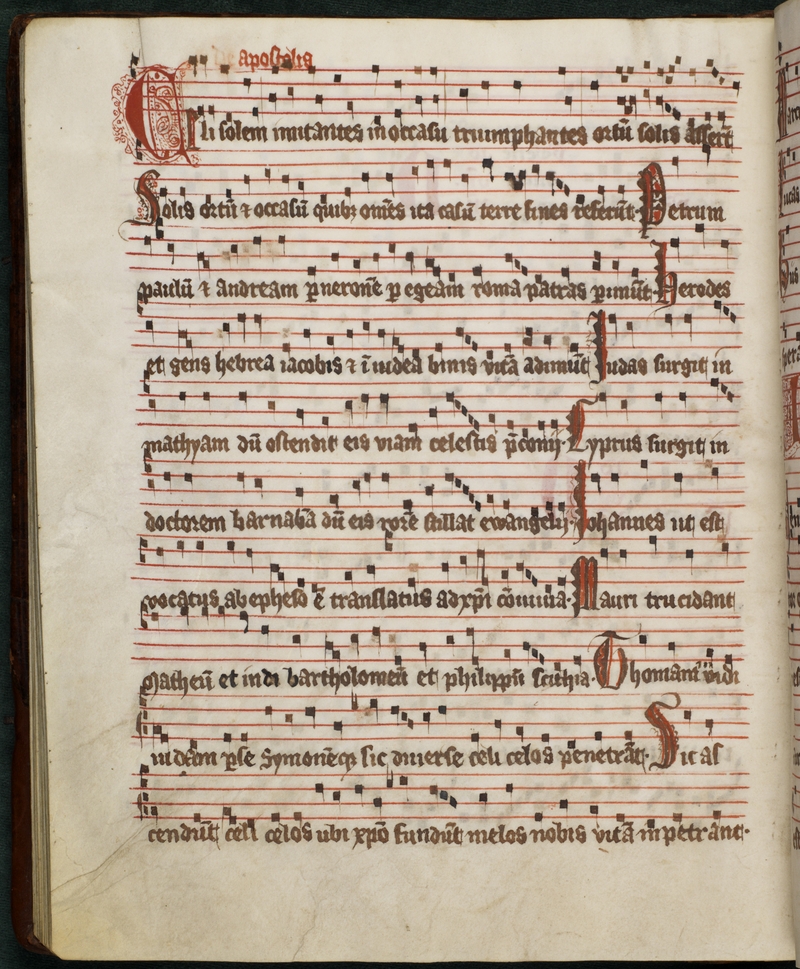 de apostolis
Celi solem imitantes in occasu triumphantes ortū solis asserūt
Solis ortū ⁊ occasū quibꝫ om̄s ita casū terre fines referūt· Petrum
paulū ⁊ andream ꝑ neronē ꝑ egeam roma patras ꝑimūt· Herodes
et gens hebrea iacobis ⁊ ī iudea binis vitā adimūt Iudas surgit in
mathyam dū ostendit eis viam celestis p̄conij· Cyprus surgit in
doctorem barnabā dū eis rorē stillat ewangelij· Iohannes ut est
vocatus ab epheso ē translatus ad xp̄i cōuiuia· Mauri trucidant
Matheū et indi bartholomeū et philippū scithia· Thomam vidi
iudeam ꝑse Symonēqꝫ sic diuerse celi celos penetrāt· Sic as
cendūt celi celos ubi xp̄o fundūt melos nobis vitā inpetrant·